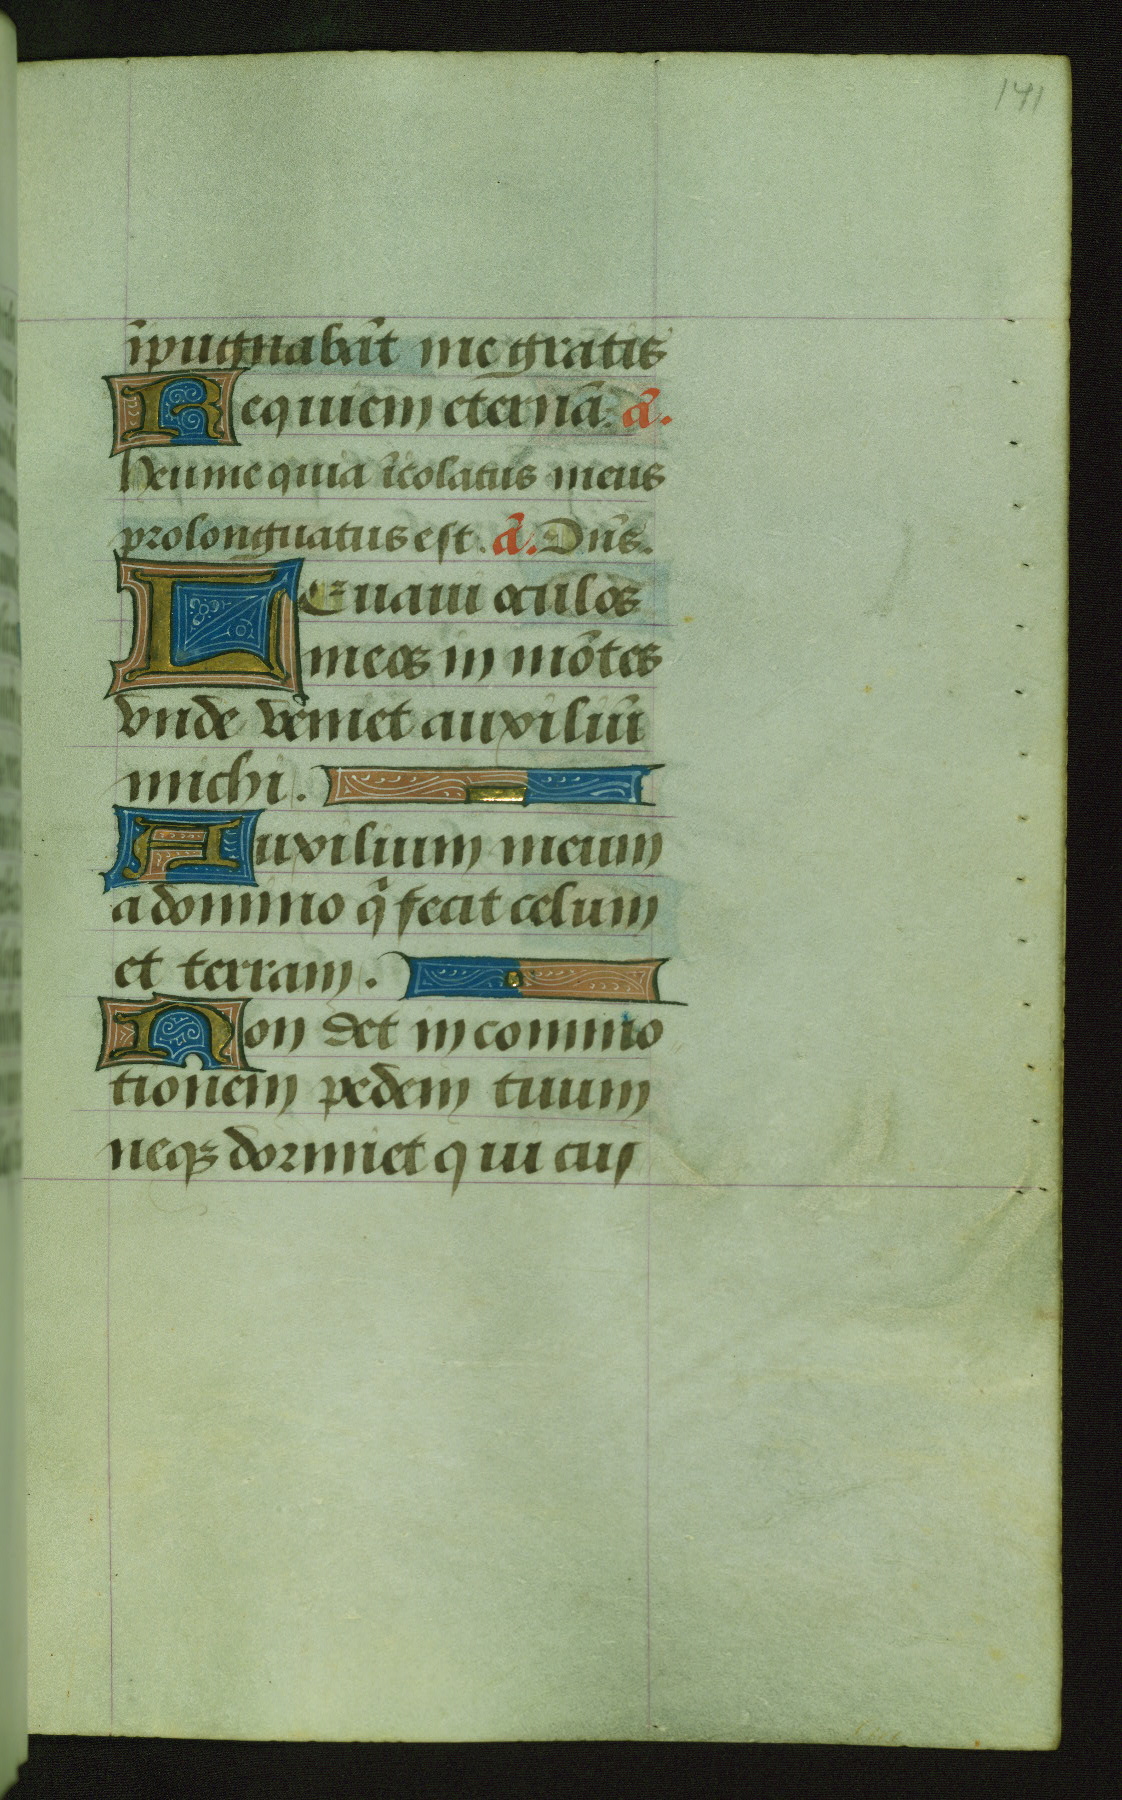 141
īpugnabāt me gratis
Requiem eternā. ā.
Heu me quia īcolatus meus
prolonguatus est. ā. Dn̄s.
LEuaui oculos
meos in mōtes
vnde veniet auxiliū
michi.
Auxilium meum
a domino q̄ fecit celum
et terram.
Non det in commo
tionem pedem tuum
neqꝫ dormiet qui cus